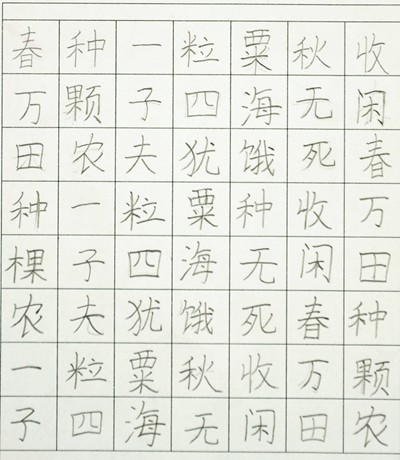 春种一粒粟秋收
万颗子四海无闲
田农夫犹饿死春
种一粒粟种收万
棵子四海无闲田
农夫犹饿死春种
一粒粟秋收万颗
子四海无闲田农